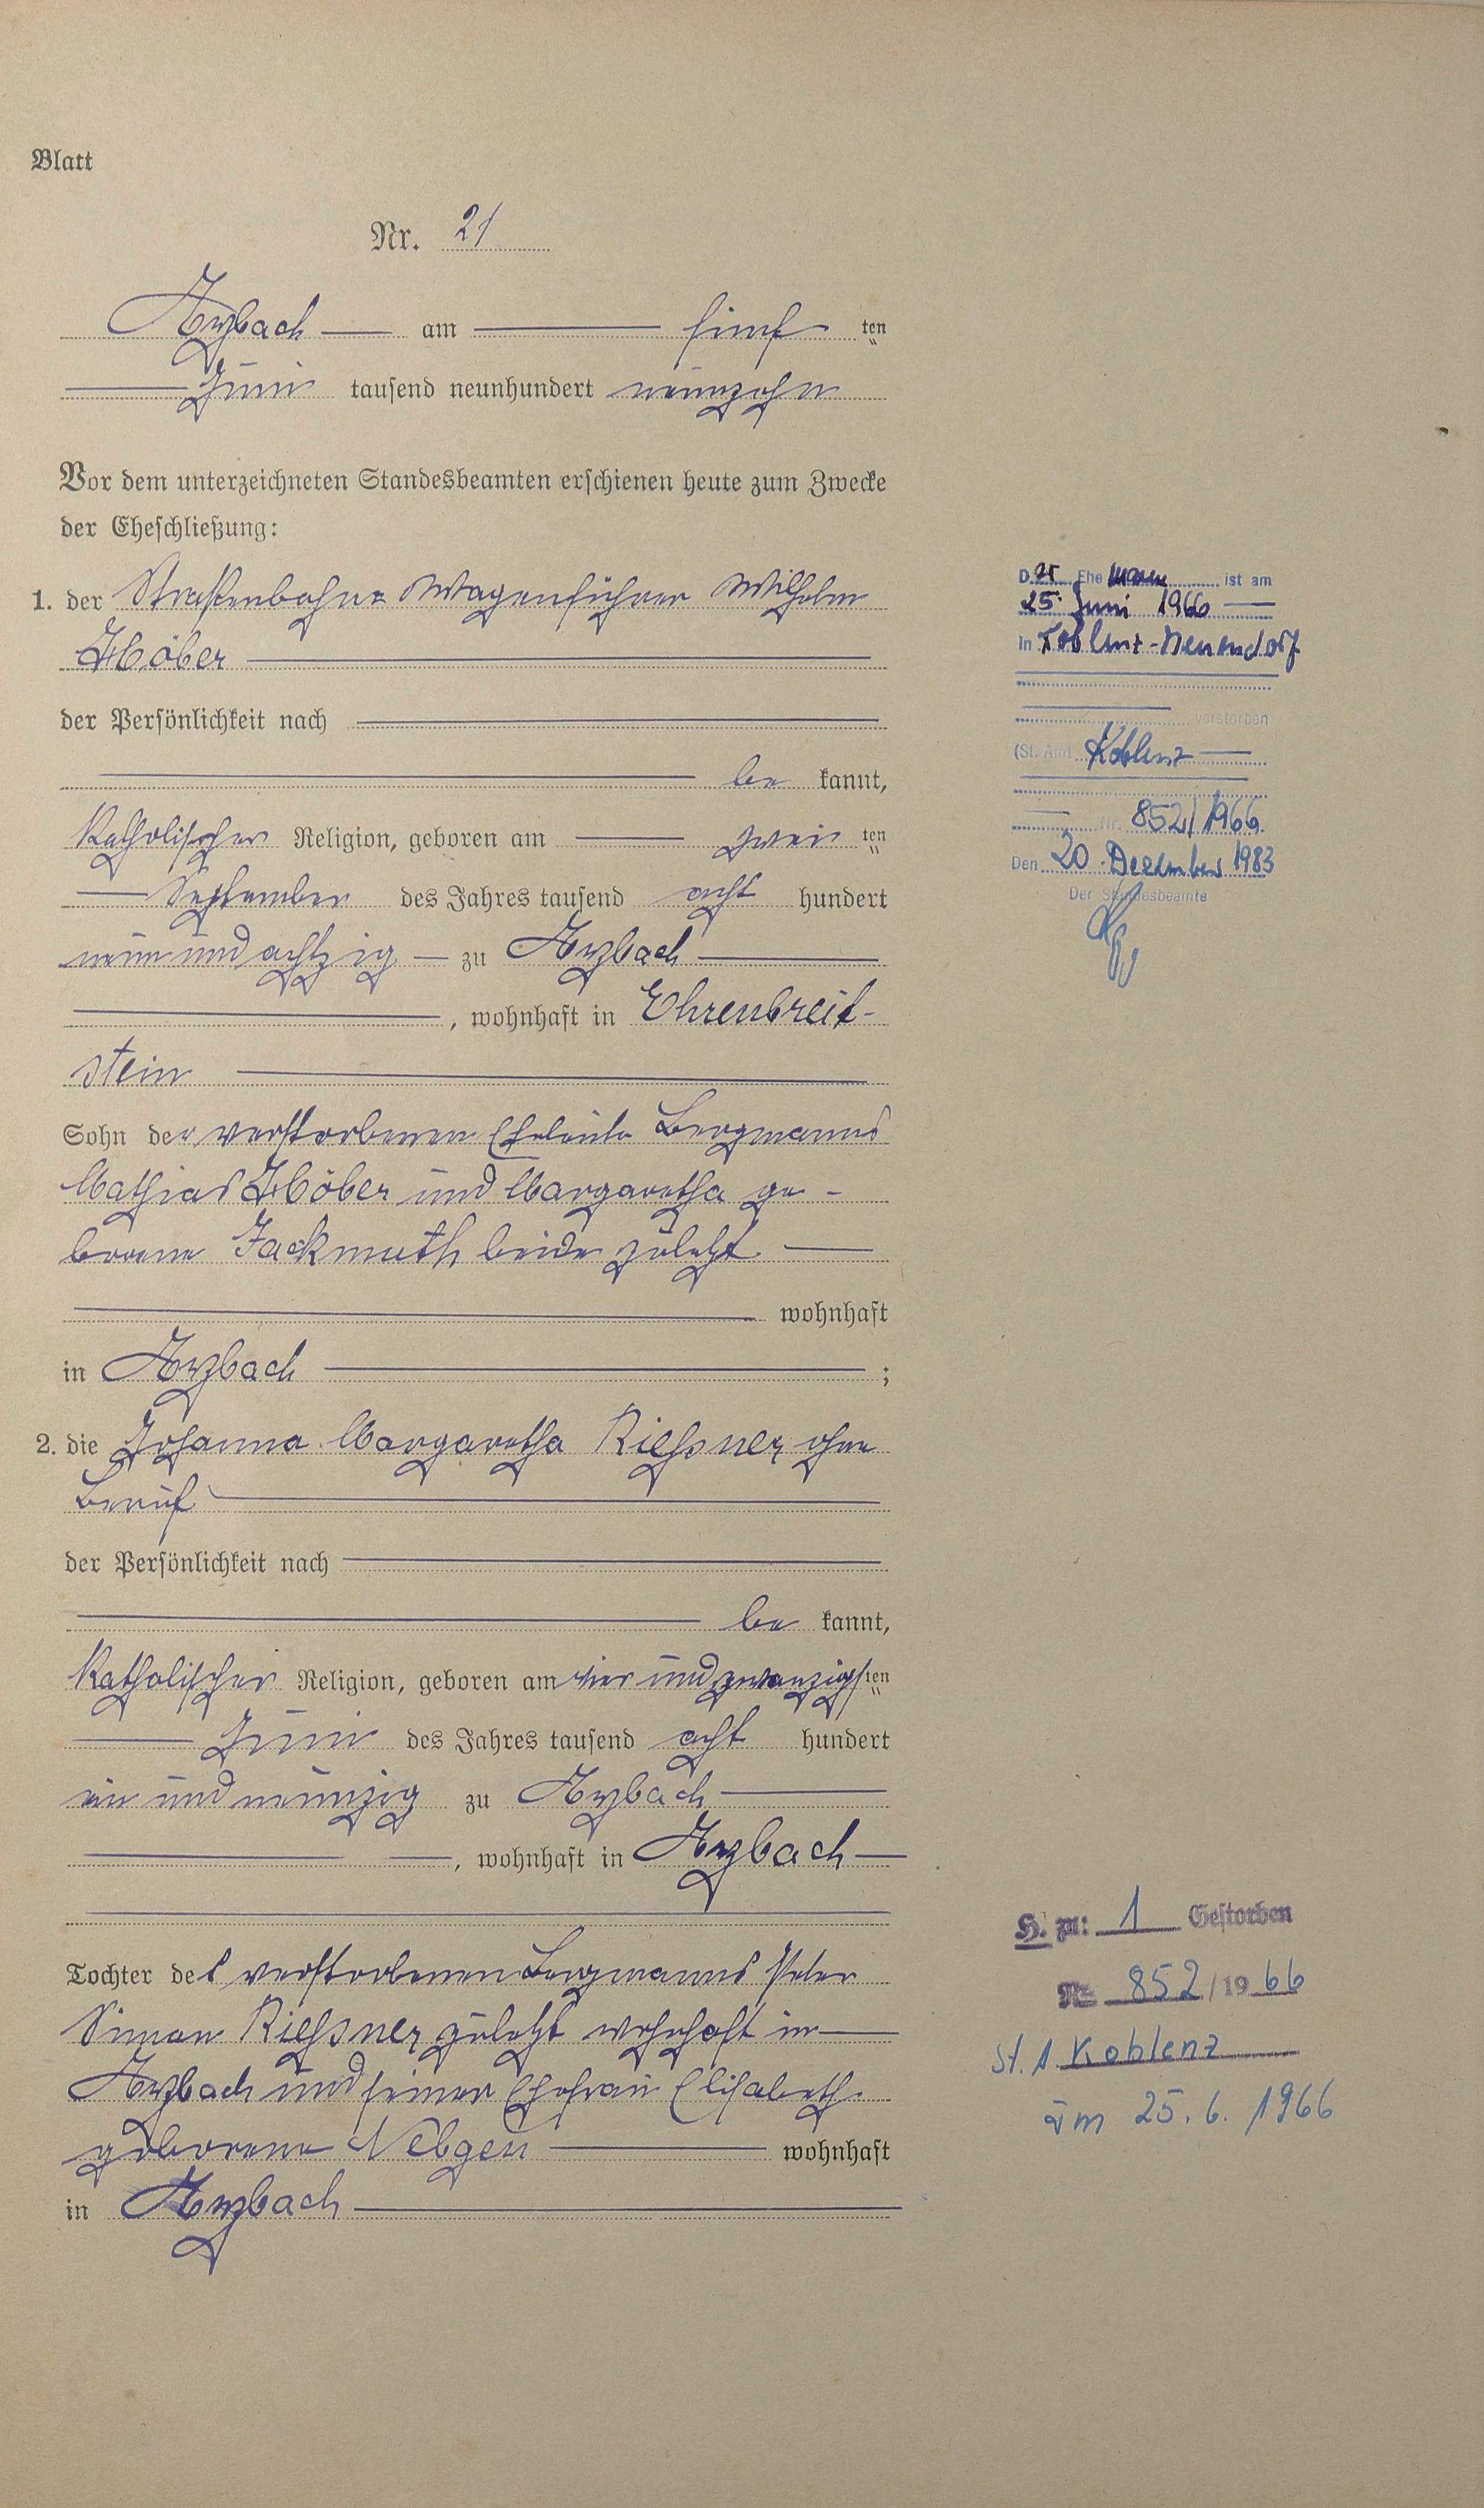 Blatt
Nr. 21
Arzbach am fünf ten
Juni tausend neunhundert neunzehn
Vor dem unterzeichneten Standesbeamten erschienen heute zum Zwecke
der Eheschließung:
1. der Straßenbahn Wagenführer Wilhelm
Höber
der Persönlichkeit nach
be kannt,
Katholischer Religion, geboren am zwei ten
September des Jahres tausend acht hundert
neun und achtzig zu Arzbach
, wohnhaft in Ehrenbreit-
stein
Sohn der verstorbenen Eheleute Bergmanns
Mathias Höber und Margaretha ge-
borene Jackmuth beide zuletzt
wohnhaft
in Arzbach ;
2. die Johanna Margaretha Rießner ohne
Beruf
der Persönlichkeit nach
be kannt,
Katholischer Religion, geboren am vier und zwanzigsten
Juni des Jahres tausend acht hundert
ein und neunzig zu Arzbach
, wohnhaft in Arzbach
Tochter des verstorbenen Bergmanns Peter
Simon Rießner zuletzt wohnhaft in
Arzbach und seiner Ehefrau Elisabeth
geborene Nebgen wohnhaft
in Arzbach
D.er Ehemann ist am
25. Juni 1966
in Koblenz-Neuendorf
verstorben
(St. Amt Koblenz
Nr. 852/1966.
Den 20. Dezember 1983
Der Standesbeamte
H. zu: 1 Gestorben
Nr. 852/1966
St. A. Koblenz
am 25.6.1966